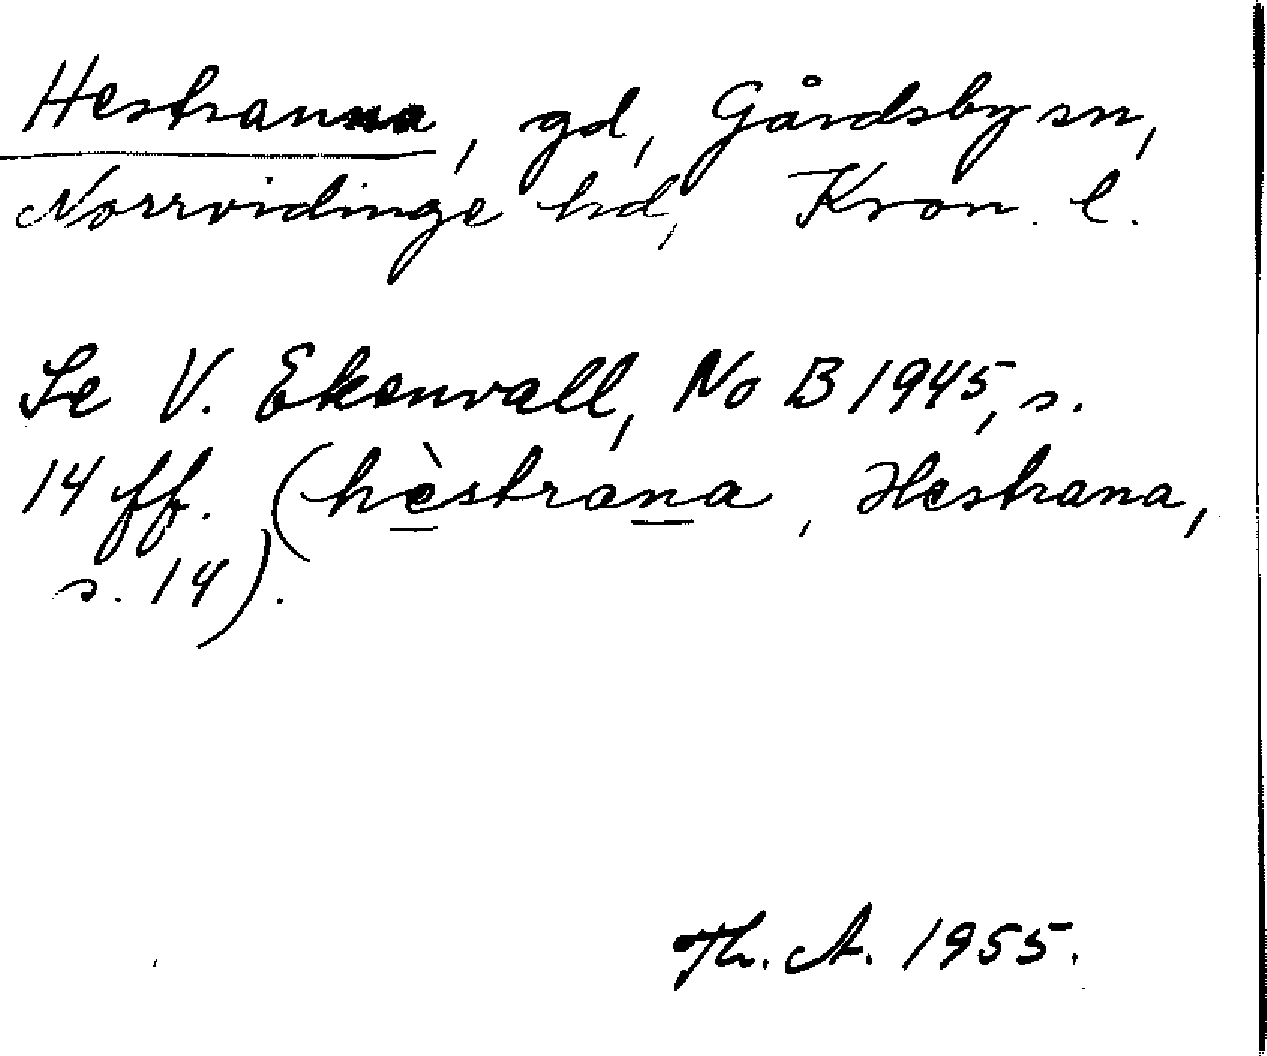 Hestranna, gd, Gårdsby sn,
Norrvidinge hd, Kron. l.
Se V. Ekenvall, NoB 1945, s.
14 ff. (hèstrana, Hestrana,
s. 14).
Th. A. 1955.